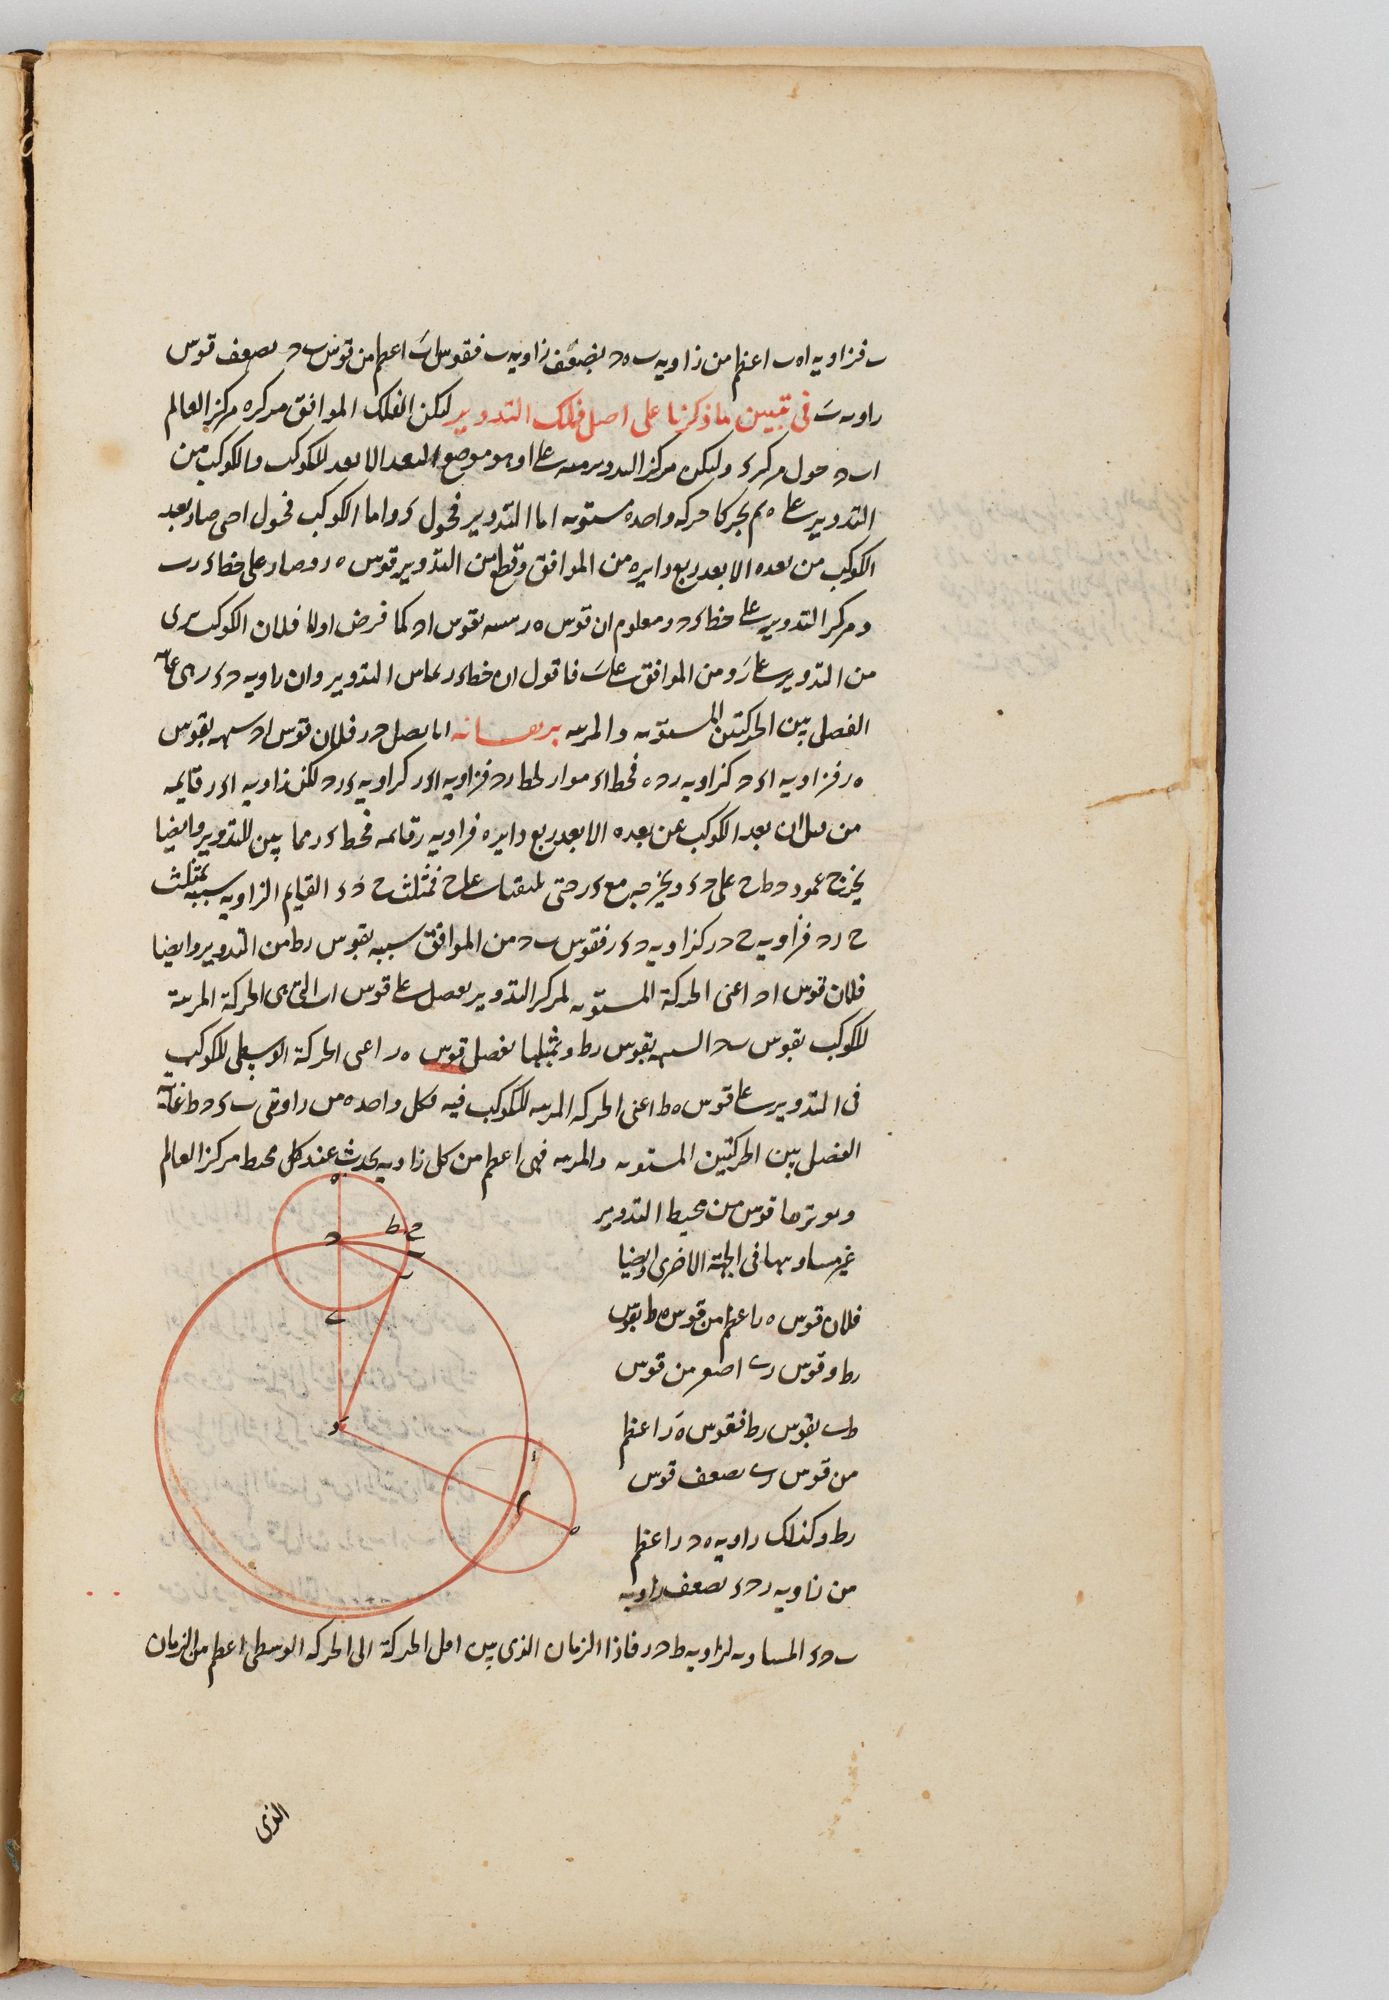 ب فزاويه اه ب اعظم من زاويه ب ه د بضعف زاويه ب فقوس اب اعظم من قوس ب د بضعف قوس
زاويه ب في تبيين ما ذكرنا على اصل فلك التدوير ليكن الفلك الموافق مركزه مركز العالم
اب د حول مركز ء وليكن مركز التدوير منه على ا وهو موضع البعد الابعد للكوكب والكوكب من
التدوير على ه ثم تحركا حركة واحدة مستويه اما التدوير فحول ء واما الكوكب فحول ا حتى صار بعد
الكوكب من بعده الابعد ربع دايره من الموافق وقطع من التدوير قوس ه ر وصار على خط ء ر ب
ومركز التدوير على خط ء د ومعلوم ان قوس ه ر شبيه بقوس ا د كما فرض اولا فلان الكوكب يرى
من التدوير على ر ومن الموافق على ب فاقول ان خط ء ر يماس التدوير وان زاويه د ء ر هى غايه
الفصل بين الحركتين المستويه والمرييه برهانه انا نصل د ر فلان قوس ا د شبيهه بقوس
ه ر فزاويه ا ء د كزاويه ر د ه فخط ا ء مواز لخط ر د فزاويه ا ء ر كزاويه ء ر د لكن زاويه ا ء ر قايمه
من قبل ان بعد الكوكب عن بعده الابعد ربع دايره فزاويه ر قائمه فخط ء ر مماس للتدوير وايضا
يخرج عمود د ط ح على د ء ويخرجه مع ء ر حتى يلتقيا على ح فمثلث ح د ء القايم الزاويه شبيه بمثلث
ح ر د فزاويه ح د ر كزاويه د ء ر فقوس ب د من الموافق شبيه بقوس ر ط من التدوير وايضا
فلان قوس ا د اعنى الحركة المستويه لمركز التدوير يفصل على قوس اب التى هى الحركة المرييه
للكوكب بقوس ب د الشبيهه بقوس ر ط وبمثلها يفصل قوس ه ر اعنى الحركة الوسطى للكوكب
فى التدوير على قوس ه ط اعنى الحركه المرييه للكوكب فيه فكل واحده من زاويتى ب ء د ط غايه
الفصل بين الحركتين المستويه والمرييه فهى اعظم من كل زاويه يحدث عند كل محيط مركز العالم
ويوترها قوس من محيط التدوير
غير مساويها فى الجهة الاخرى وايضا
فلان قوس ه ر اعظم من قوس ه ط بقوس
ر ط وقوس ر ب اصغر من قوس
ط ب بقوس ر ط فقوس ه ر اعظم
من قوس ر ب بضعف قوس
ر ط وكذلك زاويه ه د ر اعظم
من زاويه ر د ء بضعف زاويه
ب د ء المساويه لزاويه ط د ر فاذا الزمان الذى بين اقل الحركة الى الحركه الوسطى اعظم من الزمان
الذى
ه
د
ط
ح
ب
ر
ب
ء
ا
ه